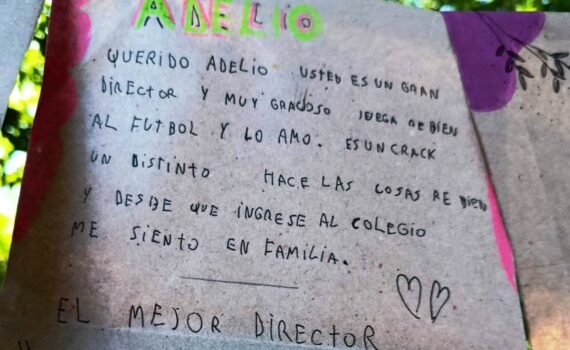 ADELIO
QUERIDO ADELIO USTED ES UN GRAN
DIRECTOR Y MUY GRACIOSO JUEGA RE BIEN
AL FUTBOL Y LO AMO. ES UN CRACK
UN DISTINTO HACE LAS COSAS RE BIEN
Y DESDE QUE INGRESE AL COLEGIO
ME SIENTO EN FAMILIA.
EL MEJOR DIRECTOR